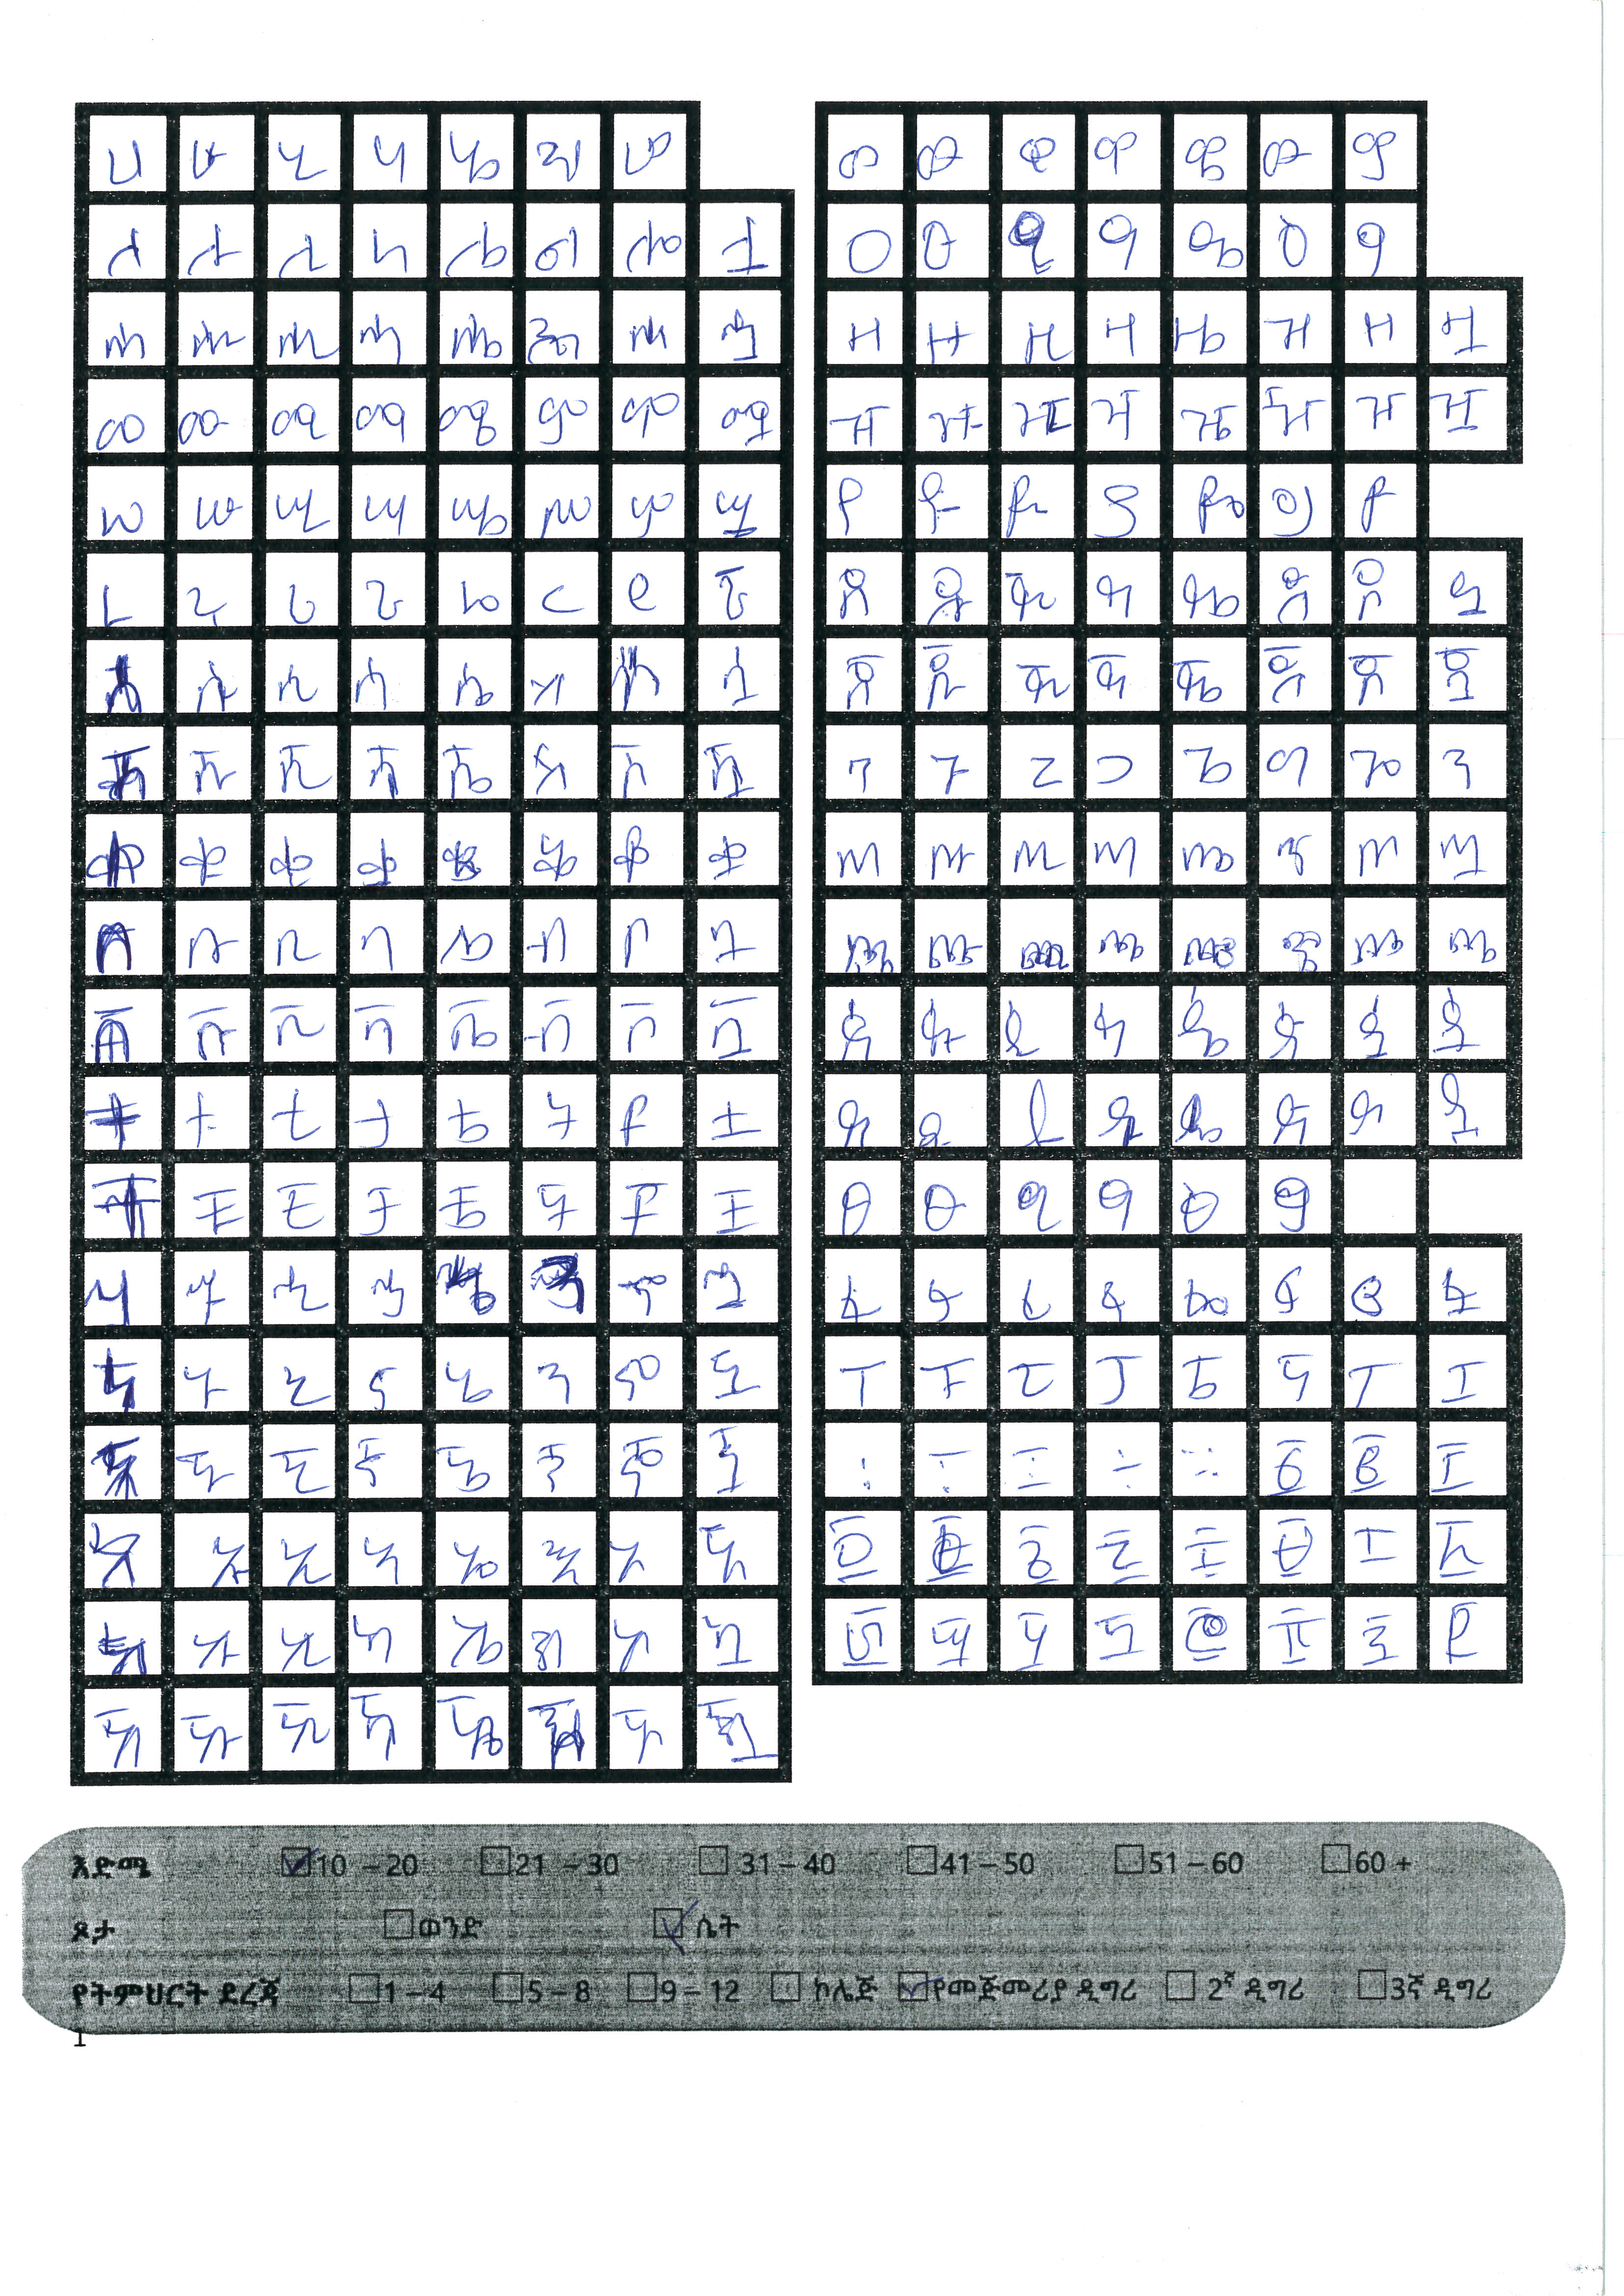 ሀ ሁ ሂ ሃ ሄ ህ ሆ
ለ ሉ ሊ ላ ሌ ል ሎ ሏ
ሐ ሑ ሒ ሓ ሔ ሕ ሖ ሗ
መ ሙ ሚ ማ ሜ ም ሞ ሟ
ሠ ሡ ሢ ሣ ሤ ሥ ሦ ሧ
ረ ሩ ሪ ራ ሬ ር ሮ ሯ
ሰ ሱ ሲ ሳ ሴ ስ ሶ ሷ
ሸ ሹ ሺ ሻ ሼ ሽ ሾ ሿ
ቀ ቁ ቂ ቃ ቄ ቅ ቆ ቋ
በ ቡ ቢ ባ ቤ ብ ቦ ቧ
ቨ ቩ ቪ ቫ ቬ ቭ ቮ ቯ
ተ ቱ ቲ ታ ቴ ት ቶ ቷ
ቸ ቹ ቺ ቻ ቼ ች ቾ ቿ
ኀ ኁ ኂ ኃ ኄ ኅ ኆ ኋ
ነ ኑ ኒ ና ኔ ን ኖ ኗ
ኘ ኙ ኚ ኛ ኜ ኝ ኞ ኟ
አ ኡ ኢ ኣ ኤ እ ኦ ኧ
ከ ኩ ኪ ካ ኬ ክ ኮ ኳ
ኸ ኹ ኺ ኻ ኼ ኽ ኾ ዃ
ወ ዉ ዊ ዋ ዌ ው ዎ
ዐ ዑ ዒ ዓ ዔ ዕ ዖ
ዘ ዙ ዚ ዛ ዜ ዝ ዞ ዟ
ዠ ዡ ዢ ዣ ዤ ዥ ዦ ዧ
የ ዩ ዪ ያ ዬ ይ ዮ
ደ ዱ ዲ ዳ ዴ ድ ዶ ዷ
ጀ ጁ ጂ ጃ ጄ ጅ ጆ ጇ
ገ ጉ ጊ ጋ ጌ ግ ጎ ጓ
ጠ ጡ ጢ ጣ ጤ ጥ ጦ ጧ
ጨ ጩ ጪ ጫ ጬ ጭ ጮ ጯ
ጰ ጱ ጲ ጳ ጴ ጵ ጶ ጷ
ጸ ጹ ጺ ጻ ጼ ጽ ጾ ጿ
ፀ ፁ ፂ ፃ ፅ ፆ
ፈ ፉ ፊ ፋ ፌ ፍ ፎ ፏ
ፐ ፑ ፒ ፓ ፔ ፕ ፖ ፗ
፡ ፣ ፤ ፥ ፨ ፩ ፪ ፫
፬ ፭ ፮ ፯ ፰ ፱ ፲ ፳
፴ ፵ ፶ ፷ ፸ ፹ ፺ ፻
እድሜ 10 – 20 21 – 30 31 – 40 41 – 50 51 – 60 60 +
ጾታ ወንድ ሴት
የትምህርት ደረጃ 1 – 4 5 – 8 9 – 12 ኮሌጅ የመጀመሪያ ዲግሪ 2ኛ ዲግሪ 3ኛ ዲግሪ
1